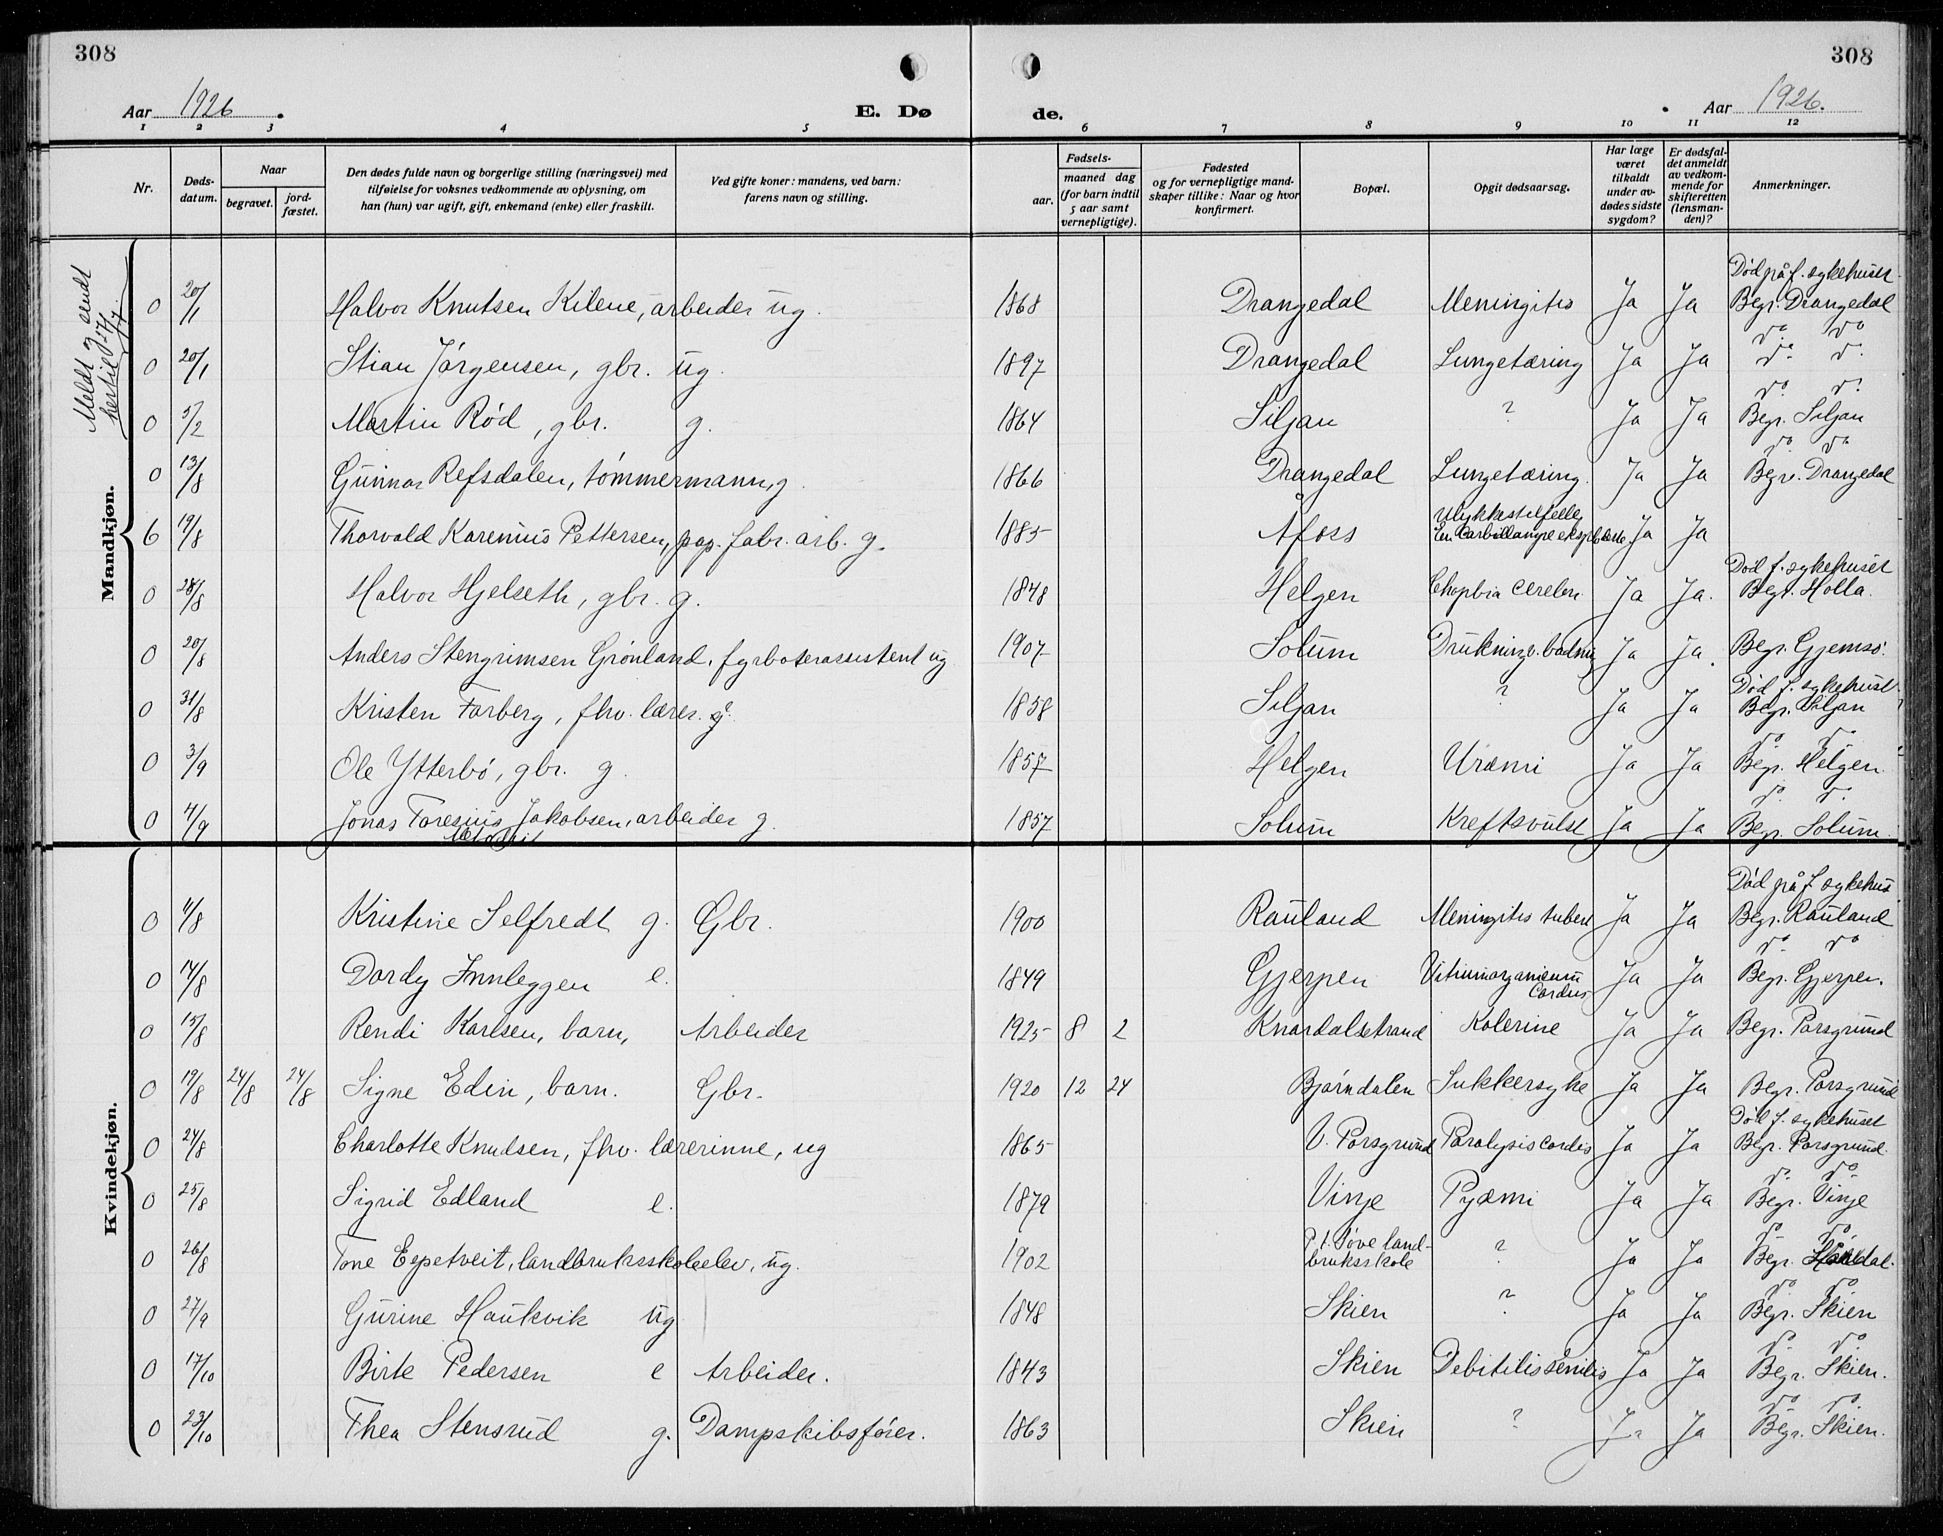 308
308
Aar 1926.
E. Døde.
Aar 1926.
1 2 3 4 5 6 7 8 9 10 11 12
Nr.
Døds-datum.
Naar
begravet.
jord-fæstet.
Den dødes fulde navn og borgerlige stilling (næringsvei) med tilføielse for voksnes vedkommende av oplysning, om han (hun) var ugift, gift, enkemand (enke) eller fraskilt.
Ved gifte koner: mandens, ved barn: farens navn og stilling.
Fødsels-
aar.
maaned dag (for barn indtil 5 aar samt vernepligtige).
Fødested og for vernepligtige mandskaper tillike: Naar og hvor konfirmert.
Bopæl.
Opgit dødsaarsag.
Har læge været tilkaldt under avdødes sidste sygdom?
Er dødsfaldet anmeldt av vedkommende for skifteretten (lensmanden)?
Anmerkninger.
Meldt og sendt hertil 17/7
Mandkjøn.
0 20/1 Halvor Knutsen Kilene, arbeider ug. 1868 Drangedal Meningitis Ja Ja Død på f. sykehuset. Begr. Drangedal
0 20/1 Stian Jørgensen, gbr. ug. 1897 Drangedal Lungetæring Ja Ja do do do do
0 5/2 Martin Rød, gbr. g. 1864 Siljan ? Ja Ja do do Begr. Siljan
0 13/8 Gunnar Refsdalen, tømmermann, g. 1866 Drangedal Lungetæring. Ja Ja do do Begr. Drangedal
6 19/8 Thorvald Karenius Pettersen, pap. fabr. arb. g. 1885 Åfoss Ulykkestilfelle Ja Ja
0 28/8 Halvor Hjelseth, gbr. g. 1848 Helgen Ja Ja. Død f. sykehuset Begr. Holla.
0 20/8 Anders Stengrimsen Grønland, fyrbøterassistent ug 1907 Solum Ja Ja. Begr. Gjemsø.
0 31/8 Kristen Forberg, fhv. lærer. g? 1858 Siljan ? Ja Ja Død f. sykehuset. Begr. Siljan
0 3/9 Ole Ytterbø, gbr. g. 1857 Helgen Uræmi Ja Ja do do Begr. Helgen.
0 4/9 Jonas Toresius Jakobsen, arbeider g. Metodist 1857 Solum Kreftsvulst Ja Ja do do Begr. Solum.
Kvindekjøn.
0 11/8 Kristine Selfredt g. Gbr. 1900 Rauland Meningitis tuberk Ja Ja Død på f. sykehus Begr. Rauland
0 14/8 Dordy Innleggen e. 1849 Gjerpen Vitium organicum Cordis Ja Ja do do Begr. Gjerpen.
0 15/8 Rendi Karlsen, barn, Arbeider 1925 8 2 Knardalstrand Kolerine Ja Ja Begr. Porsgrund
0 19/8 24/8 24/8 Signe Edin, barn. Gbr. 1920 12 24 Bjørndalen Sukkersyke Ja Ja Begr. Porsgrund
0 24/8 Charlotte Knudsen, fhv. lærerinne, ug 1865 V. Porsgrund Paralysis cordis Ja Ja Død f. sykehuset Begr. Porsgrund.
0 25/8 Sigrid Edland e. 1879 Vinje Pyæmi Ja Ja do do Begr. Vinje
0 26/8 Tone Espetveit, landbruksskoleelev, ug. 1902 P.t. Søve landbruksskole ? Ja Ja do do Begr.
0 27/9 Gurine Haukvik ug 1848 Skien ? Ja Ja do do Begr. Skien
0 17/10 Birte Pedersen e Arbeider. 1843 Skien Debitilis senilis Ja Ja do do Begr. Skien.
0 23/10 Thea Stensrud g. Dampskibsfører. 1863 Skien ? Ja Ja do do Begr. Skien.